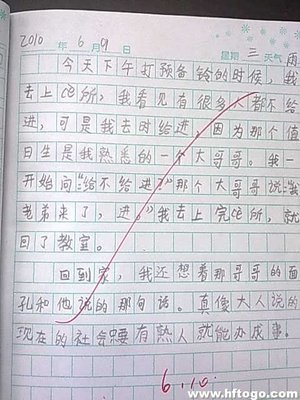 2010 年 6 月 9 日 星期 三 天气 雨
今天下午打预备铃的时候，我
去上ce所，我看见有很多人都不给
进，可是我去时给进，因为那个值
日生是我熟悉的一个大哥哥。我一
开始问“给不给进？”那个大哥哥说：“
老弟来了，进。”我去上完ce所，就
回了教室。
回到家，我还想看那哥哥的面
孔和他说的那句话。真像大人说的
现在的社会只要有熟人就能办成事。
6.10
www.hftogo.com